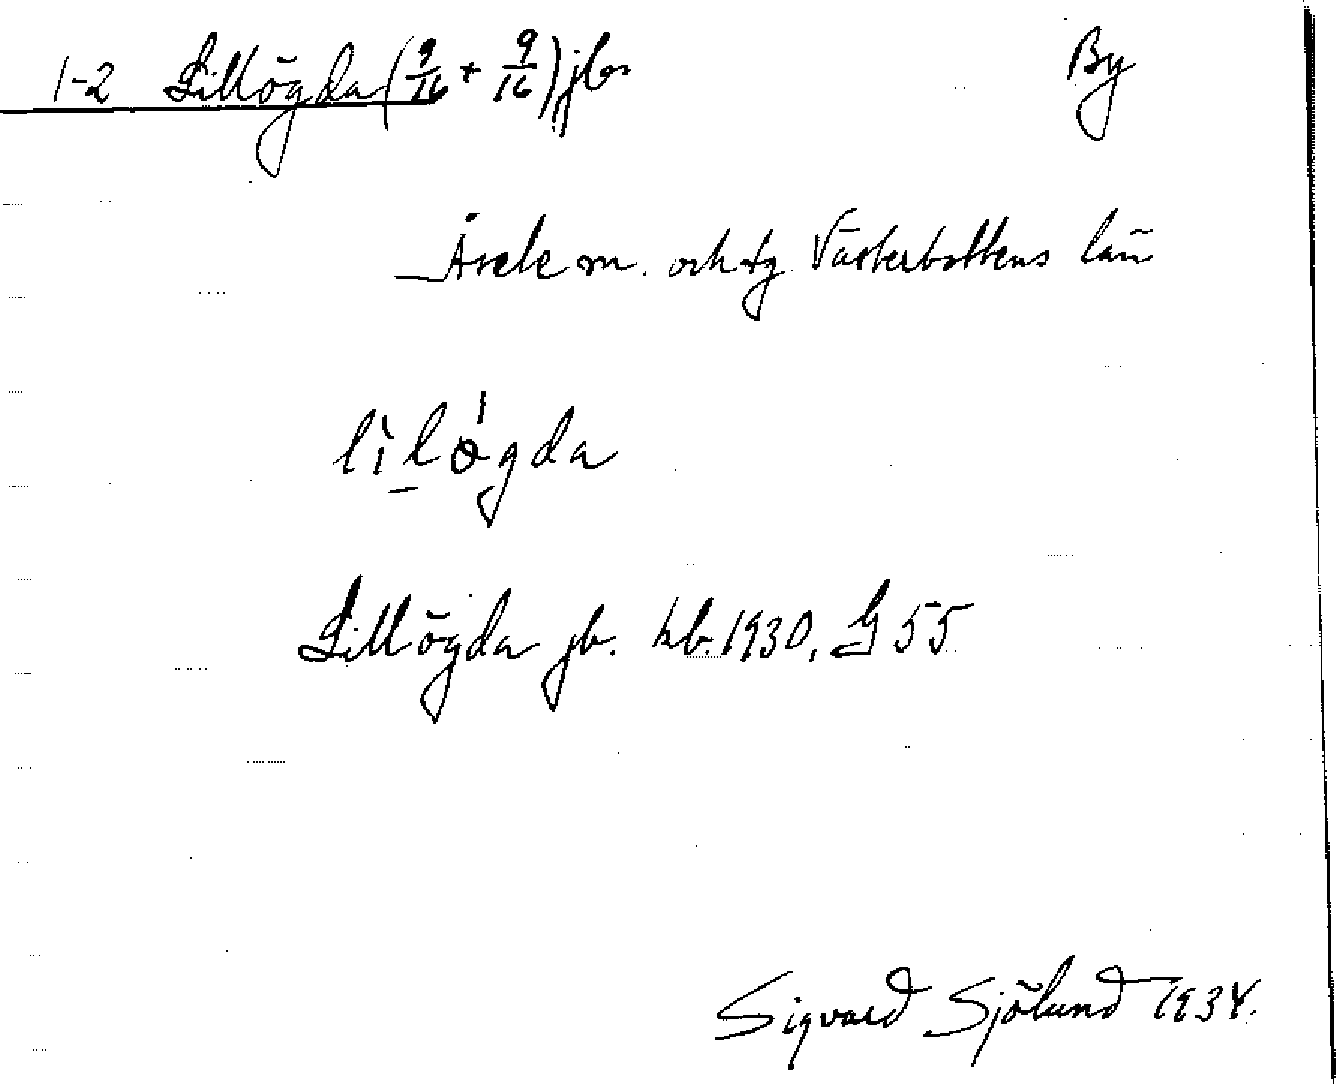 1-2 Lillögda (9/16 + 9/16) jb. By
Åsele sn. och tg. Västerbottens län
lìlǿgda
Lillögda jb. kb. 1930, G 55
Sigvard Sjölund 1934.